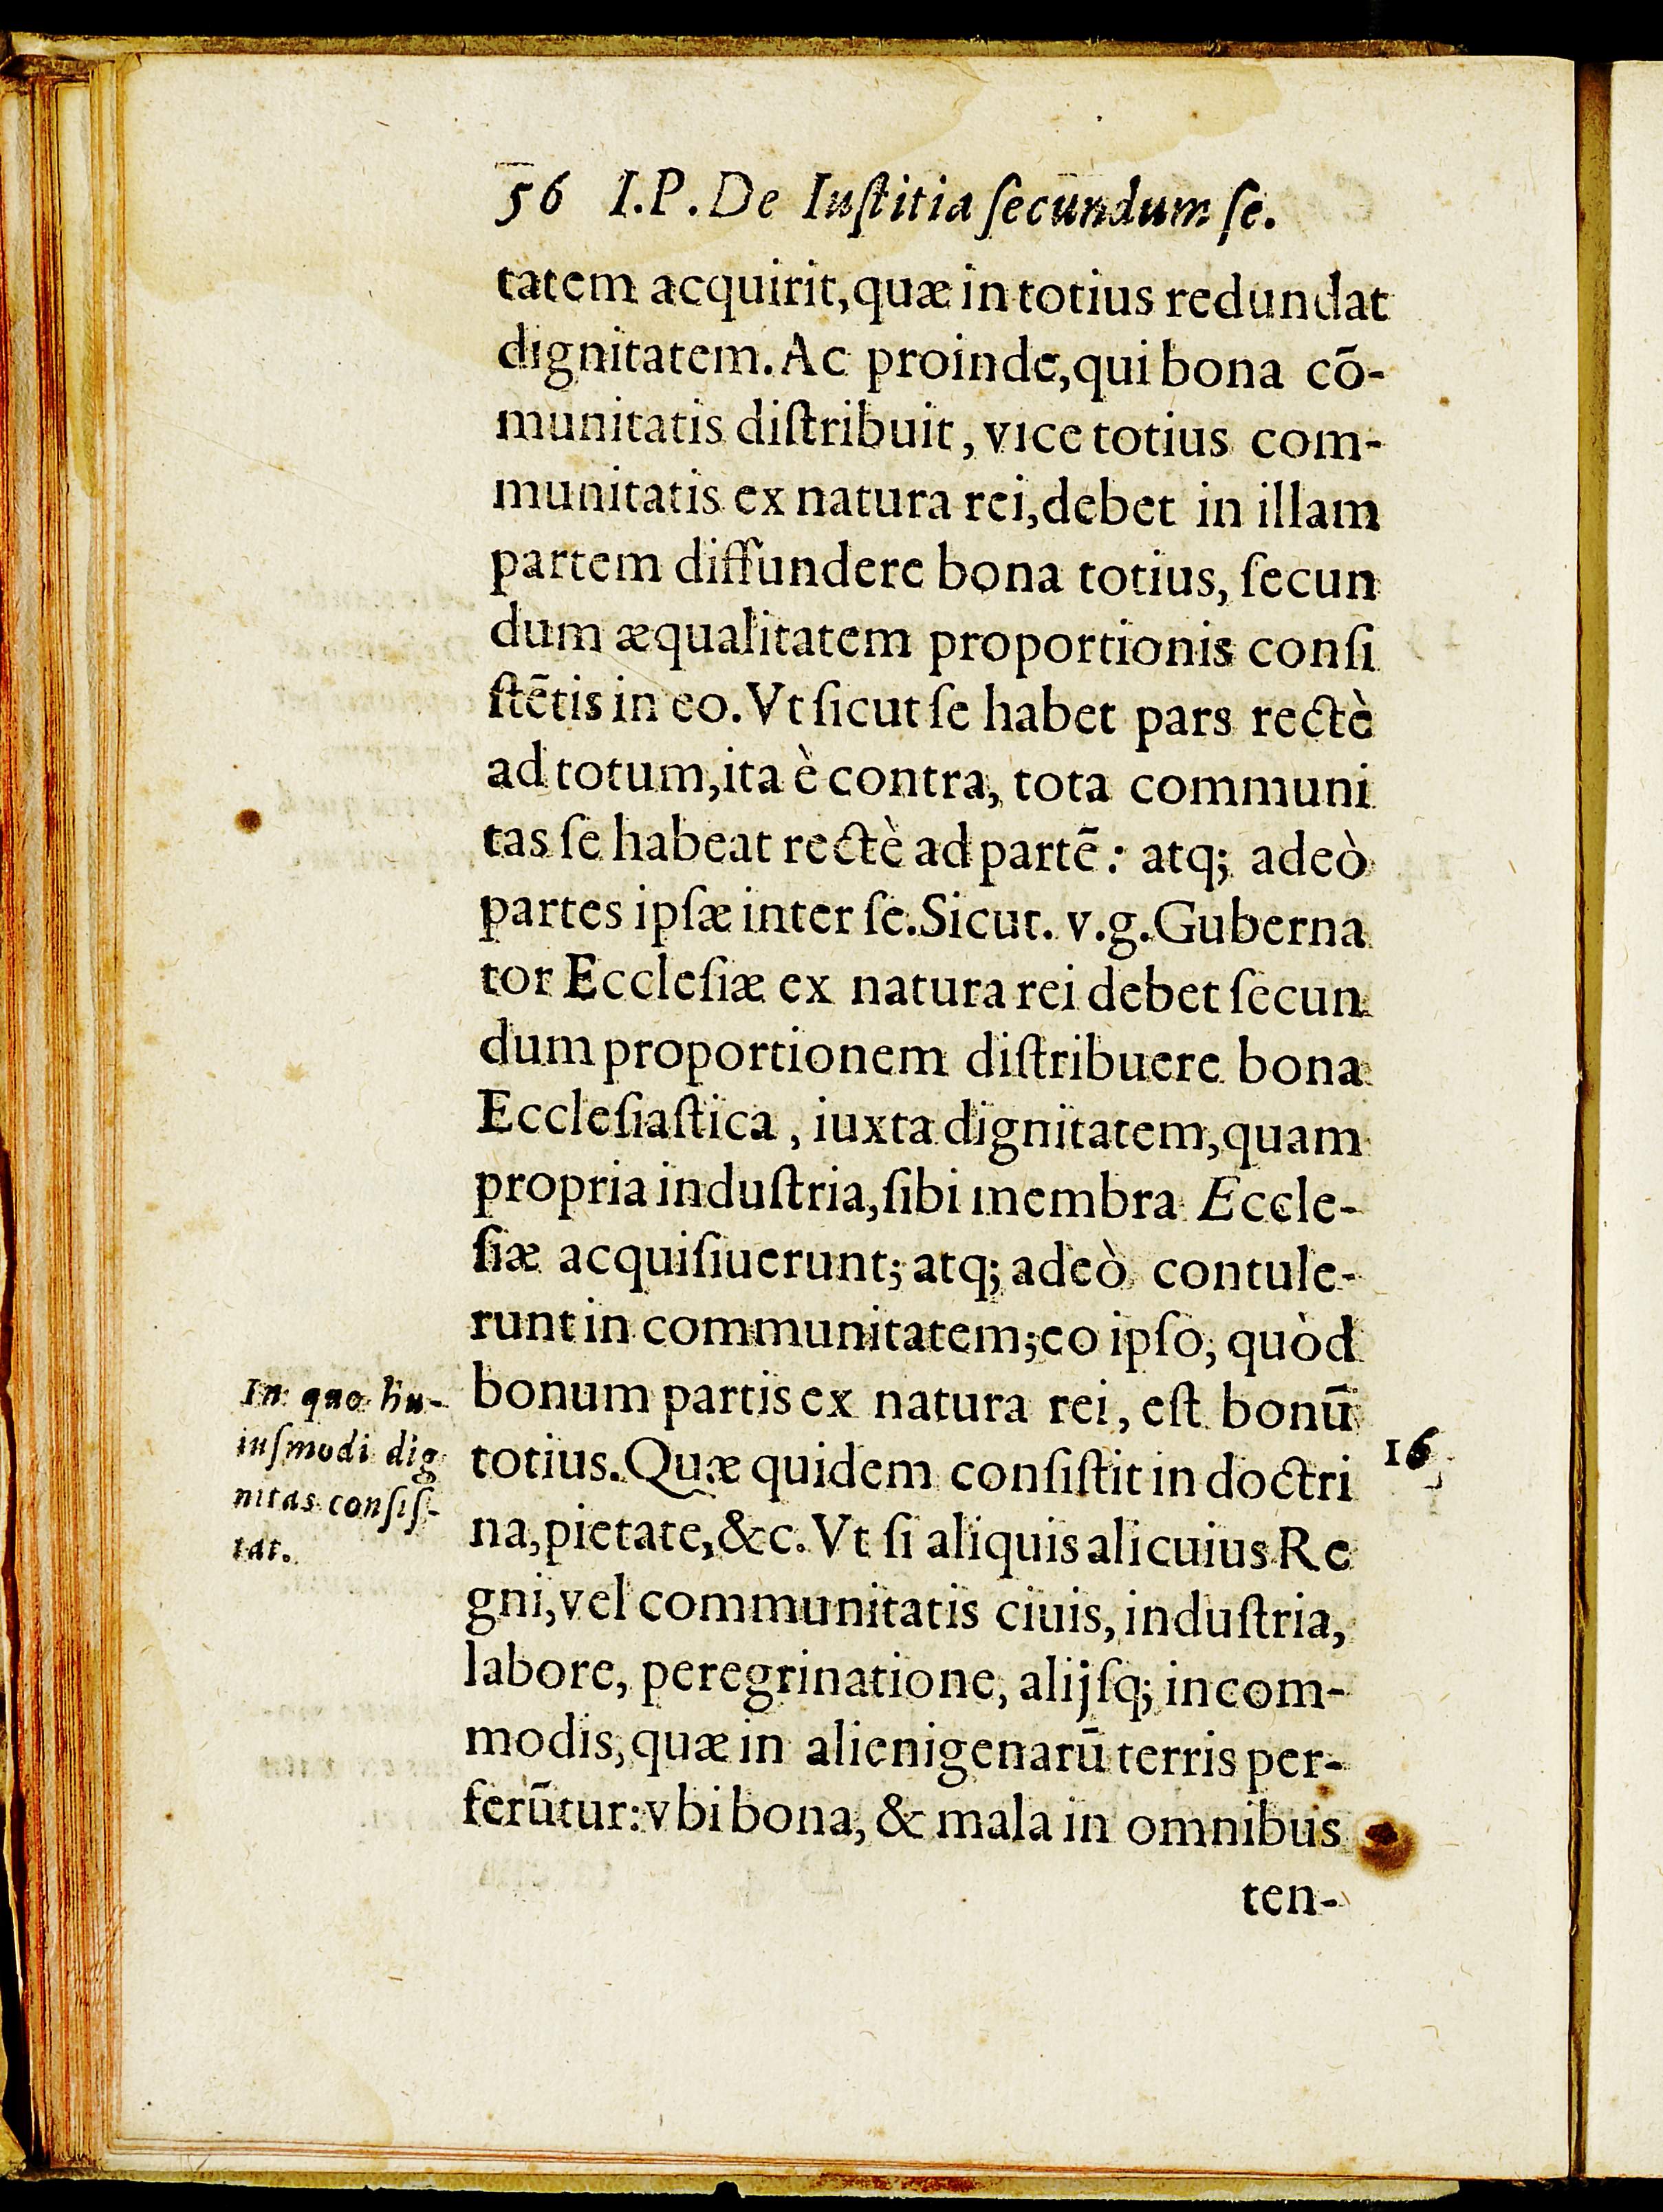 56 I.P. De Iuſtitia ſecundum ſe.
tatem acquirit, quæ in totius redundat
dignitatem. Ac proinde, qui bona cō-
munitatis diſtribuit, vice totius com-
munitatis ex natura rei, debet in illam
partem diffundere bona totius, ſecun
dum æqualitatem proportionis conſi
ſtētis in eo. Vt ſicut ſe habet pars rectè
ad totum, ita è contra, tota communi
tas ſe habeat rectè ad partē: atq; adeò
partes ipſæ inter ſe. Sicut. v.g. Guberna
tor Eccleſiæ ex natura rei debet ſecun
dum proportionem diſtribuere bona
Eccleſiaſtica, iuxta dignitatem, quam
propria induſtria, ſibi membra Eccle-
ſiæ acquiſiuerunt; atq; adeò contule-
runt in communitatem; eo ipſo, quòd
bonum partis ex natura rei, eſt bonū
totius. Quæ quidem conſiſtit in doctri
na, pietate, &c. Vt ſi aliquis alicuius Re
gni, vel communitatis ciuis, induſtria,
labore, peregrinatione, alijſq; incom-
modis, quæ in alienigenarū terris per-
ferūtur: vbi bona, & mala in omnibus
ten-
In quo hu-
iuſmodi dig
nitas conſiſ-
tat.
16